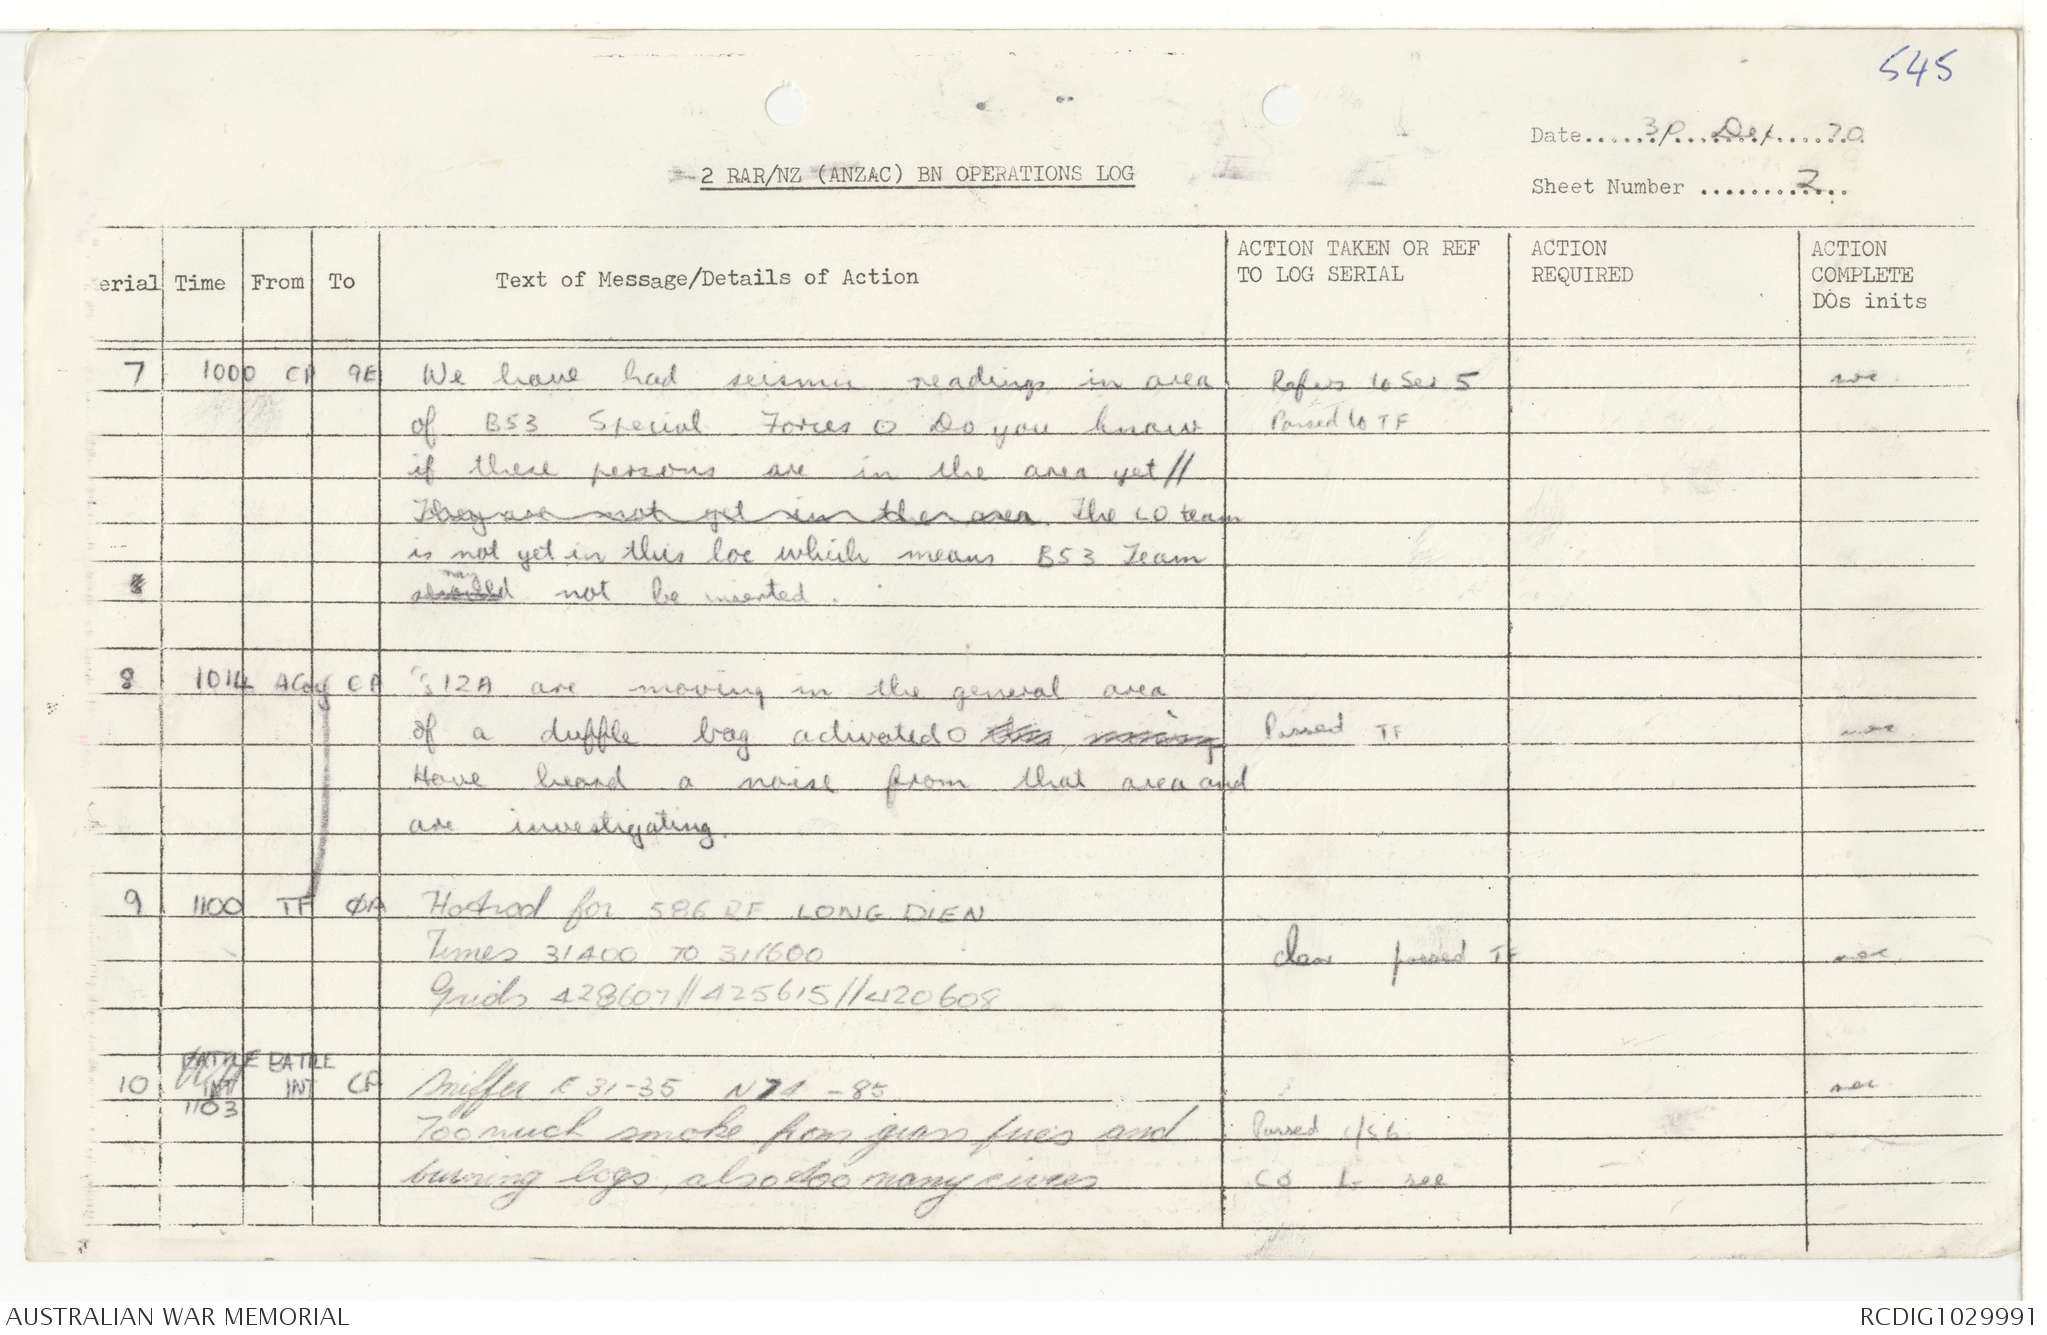 545
Date 31 Dec 70
2 RAR/NZ (ANZAC) BN OPERATIONS LOG
Sheet Number 2
erial Time From To Text of Message/Details of Action ACTION TAKEN OR REF TO LOG SERIAL ACTION REQUIRED ACTION COMPLETE DOs inits
7 1000 CP 9E We have had seismic readings in area Refers to Ser 5
of B53 Special Forces O Do you know Passed to TF
if these persons are in the area yet//
They are not yet in the area. The LO team
is not yet in this loc which means B53 Team
may
should not be inserted.
8
8 1014 ACoy CP 312A are moving in the general area
of a duffle bag activated O Passed TF
Have heard a noise from that area and
are investigating.
9 1100 TF ØA Hotrod for 586 RF LONG DIEN
Times 311400 TO 311600 clear passed TF
Grids 428607//425615//420608
BATTLE BATTLE
10 INT INT CP Sniffer E 31-35 N74-85
1103
Too much smoke from grass fires and Passed
burning logs, also too many civvies CO to see
AUSTRALIAN WAR MEMORIAL RCDIG1029991